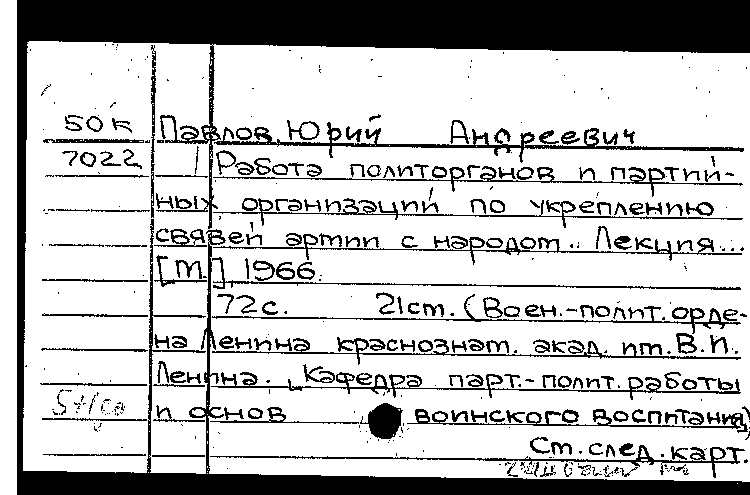 50к Павлов, Юрий Андреевич
7022 Работа политорганов и партий-
ных организаций по укреплению
связей армии с народом.. Лекция...
[М.], 1966.
72с. 21см. (Воен.-полит. орде-
на Ленина краснознам. акад. им. В.И.
Ленина. Кафедра парт.-полит. работы
и основ воинского воспитания)
См. след. карт.